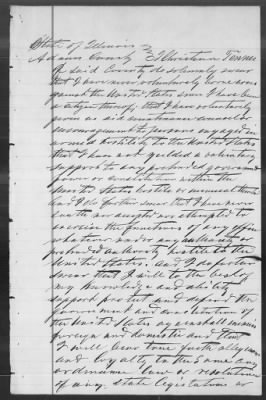 State of Illinois
Adams County I Christian
of said County do solemnly swear
that I have never voluntarily borne arms
against the United States since I have been
a citizen thereof; that I have voluntarily
given no aid countenance counsel or
encouragement to persons engaged in
armed hostility to the United States
that I have not yielded a voluntary
support to any pretended government
power or constitution within the
United States hostile or inimical thereto
And I do further swear that I have never
nor accepted nor attempted to
exercise the functions of any office
whatever under any authority
pretended authority hostile to the
United States. and I do further
swear that I will to the best of
my knowledge and ability
support protect and defend the
government and constitution of
the United States against all enemies
foreign and domestic and that
I will bear true faith allegiance
and loyalty to the same any
ordinance law or resolution
of any State legislation or